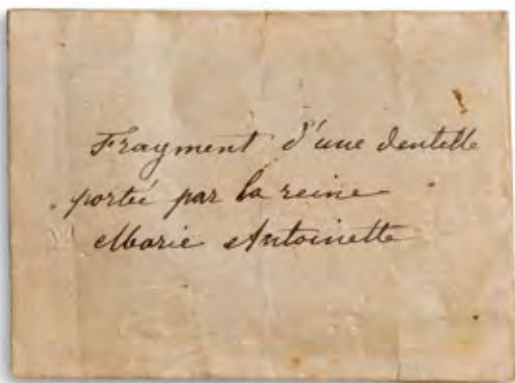 Fragment d'une dentelle
portée par la reine
Marie Antoinette